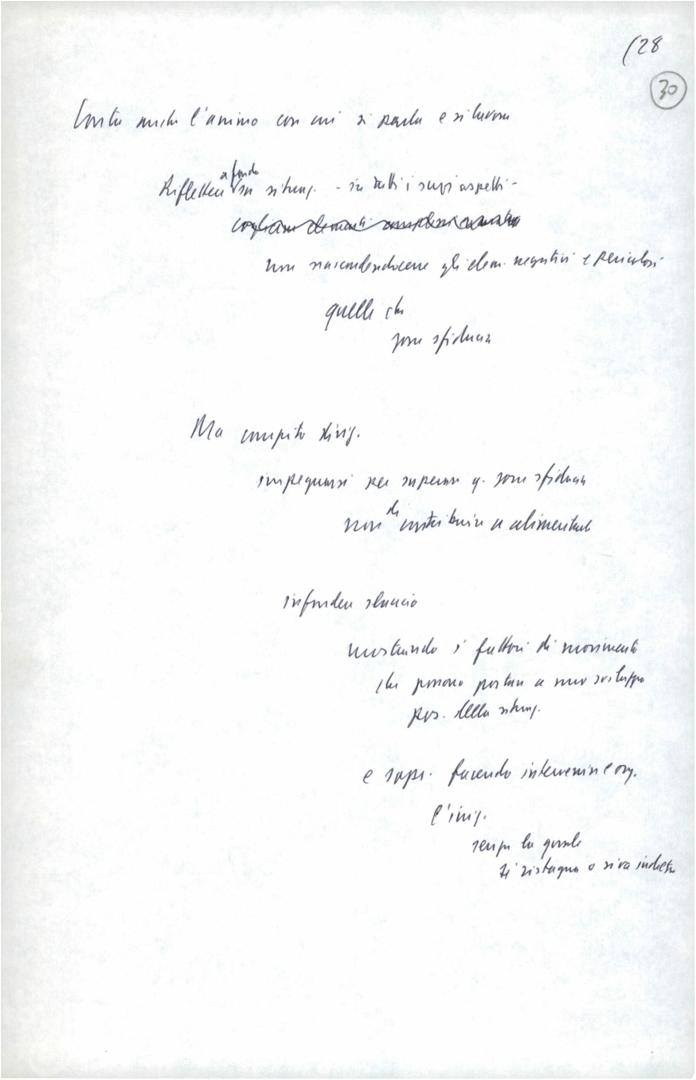 (28
30
Conta anche l'animo con cui si parla e si lavora
a fondo
Riflettere su situaz. - in tutti i suoi aspetti -
non nascondendocene gli elem. negativi e pericolosi
quelli che
sfiducia
Ma compito dirig.
impegnarsi per superare q. sfiducia
di
non contribuire a alimentarla
infondere slancio
mostrando i fattori di movimento
che possono portare a nuovo sviluppo
pos. della situaz.
e sopr. facendo intervenire e org.
l'iniz.
senza la quale
si ristagna o si va indietro